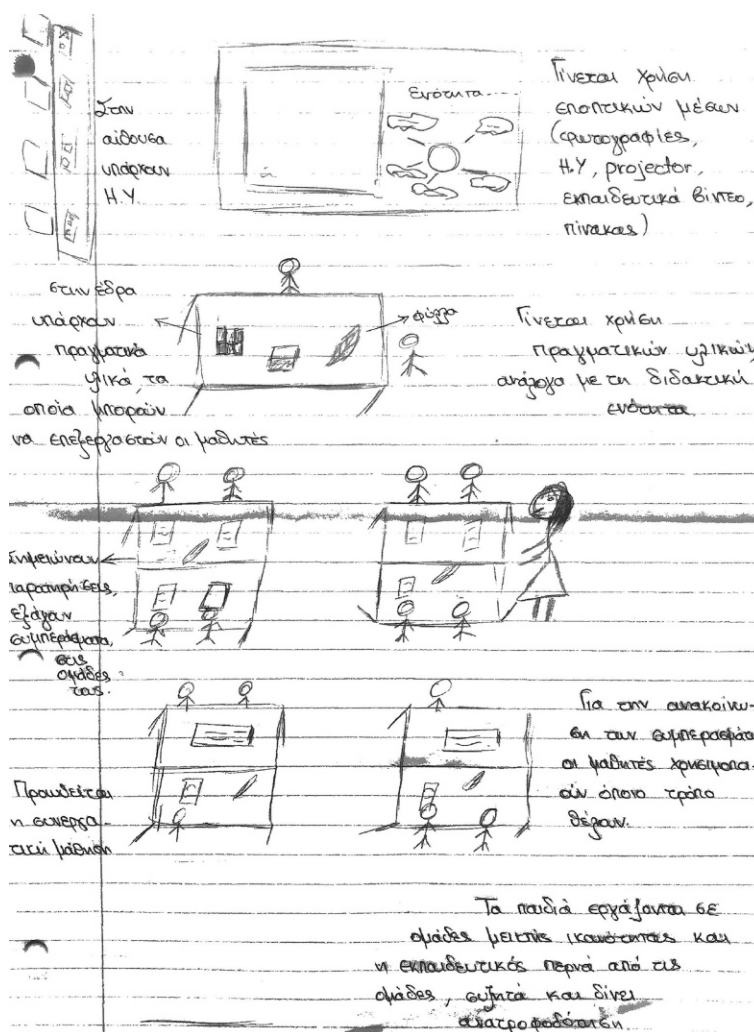 Στην
αίθουσα
υπάρχουν
Η.Υ.
Ενότητα
Γίνεται χρήση
εποπτικών μέσων
(φωτογραφίες,
Η.Υ, projector,
εκπαιδευτικά βίντεο,
πίνακας)
στην έδρα
υπάρχουν
πραγματικά
υλικά, τα
οποία μπορούν
να επεξεργαστούν οι μαθητές
φύλλα
Γίνεται χρήση
πραγματικών υλικών,
ανάλογα με τη διδακτική
ενότητα
Σημειώνουν
παρατηρήσεις,
εξάγουν
συμπεράσματα,
στις
ομάδες
τους.
Προωθείται
η συνεργα-
τική μάθηση
Για την ανακοίνω-
ση των συμπερασμάτ
οι μαθητές χρησιμοποι
ούν όποιο τρόπο
θέλουν.
Τα παιδιά εργάζονται σε
ομάδες μεικτής ικανότητας και
η εκπαιδευτικός περνά από τις
ομάδες, συζητά και δίνει
ανατροφοδότηση